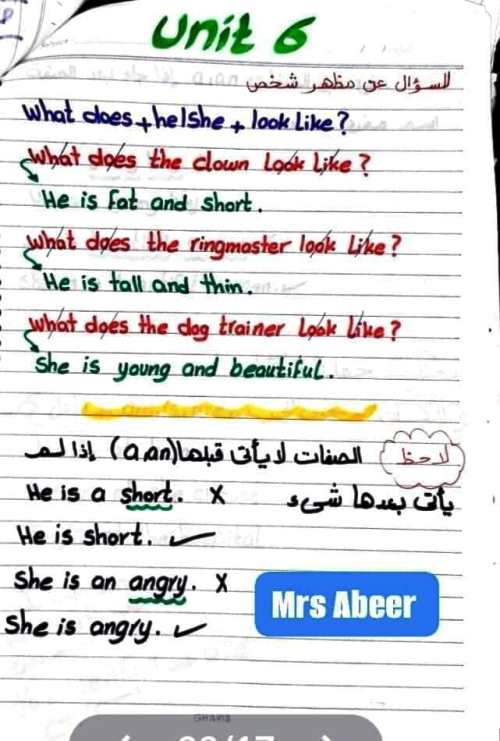 Unit 6
للسؤال عن مظهر شخص
What does + he/she + look like?
What does the clown look like?
He is fat and short.
What does the ringmaster look like?
He is tall and thin.
What does the dog trainer look like?
She is young and beautiful.
لاحظ الصفات لا يأتى قبلها (a, an) إذا لم
يأتى بعدها شىء
He is a short. X
He is short. ✓
She is an angry. X
Mrs Abeer
She is angry. ✓